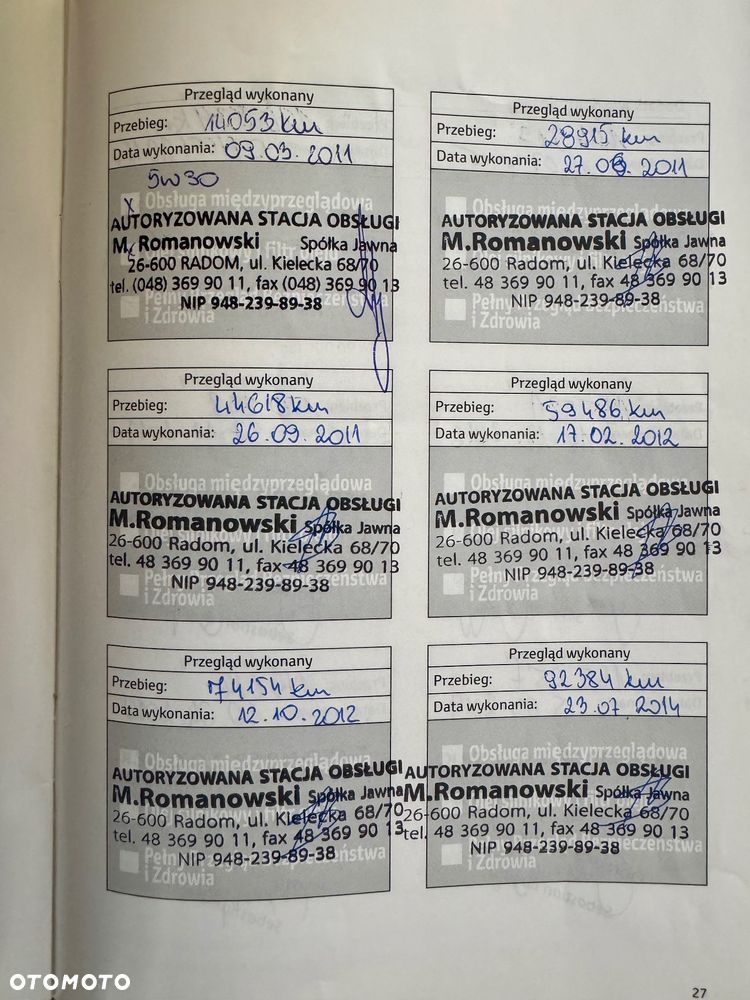 Przegląd wykonany
Przebieg: 14053 km
Data wykonania: 09.03.2011
5W30
X Obsługa międzyprzeglądowa
AUTORYZOWANA STACJA OBSŁUGI
M. Romanowski Spółka Jawna
26-600 RADOM, ul. Kielecka 68/70
tel. (048) 369 90 11, fax (048) 369 90 13
NIP 948-239-89-38
Pełny
i Zdrowia
Przegląd wykonany
Przebieg: 28915 km
Data wykonania: 27.06.2011
Obsługa międzyprzeglądowa
AUTORYZOWANA STACJA OBSŁUGI
M.Romanowski Spółka Jawna
26-600 Radom, ul. Kielecka 68/70
tel. 48 369 90 11, fax 48 369 90 13
Pełny Przegląd Bezpieczeństwa
NIP 948-239-89-38
i Zdrowia
Przegląd wykonany
Przebieg: 44618 km
Data wykonania: 26.09.2011
Obsługa międzyprzeglądowa
AUTORYZOWANA STACJA OBSŁUGI
M.Romanowski Spółka Jawna
26-600 Radom, ul. Kielecka 68/70
tel. 48 369 90 11, fax 48 369 90 13
Pełny Przegląd Bezpieczeństwa
NIP 948-239-89-38
i Zdrowia
Przegląd wykonany
Przebieg: 59486 km
Data wykonania: 17.02.2012
Obsługa międzyprzeglądowa
AUTORYZOWANA STACJA OBSŁUGI
M.Romanowski Spółka Jawna
26-600 Radom, ul. Kielecka 68/70
tel. 48 369 90 11, fax 48 369 90 13
Pełny Przegląd Bezpieczeństwa
NIP 948-239-89-38
i Zdrowia
Przegląd wykonany
Przebieg: 74154 km
Data wykonania: 12.10.2012
Obsługa międzyprzeglądowa
AUTORYZOWANA STACJA OBSŁUGI
M.Romanowski Spółka Jawna
26-600 Radom, ul. Kielecka 68/70
tel. 48 369 90 11, fax 48 369 90 13
Pełny Przegląd Bezpieczeństwa
NIP 948-239-89-38
i Zdrowia
Przegląd wykonany
Przebieg: 92384 km
Data wykonania: 23.07.2014
Obsługa międzyprzeglądowa
AUTORYZOWANA STACJA OBSŁUGI
M.Romanowski Spółka Jawna
26-600 Radom, ul. Kielecka 68/70
tel. 48 369 90 11, fax 48 369 90 13
NIP 948-239-89-38
i Zdrowia
OTOMOTO
27